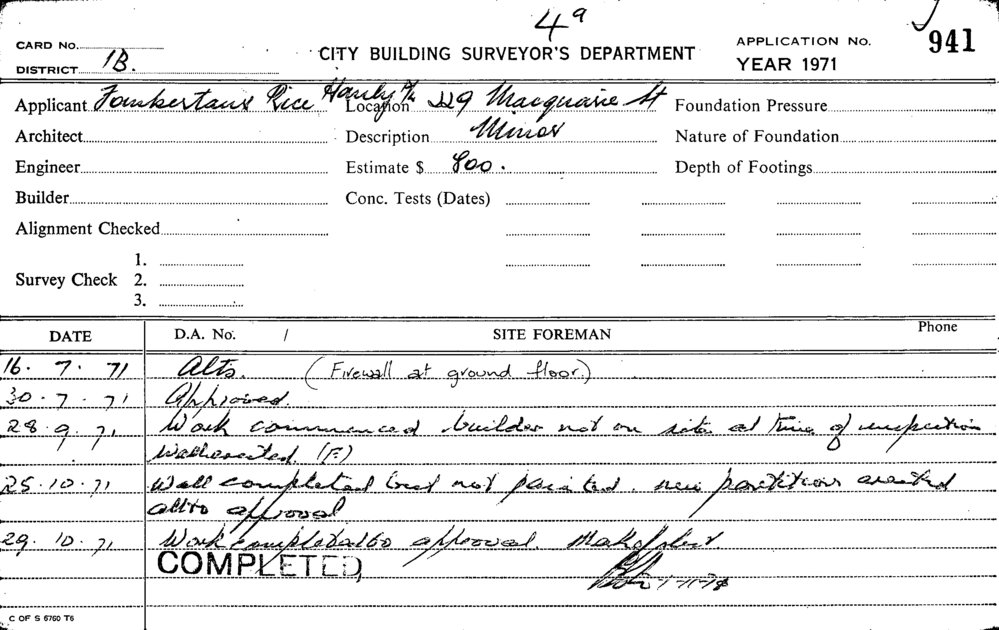 4a
CARD No.
CITY BUILDING SURVEYOR'S DEPARTMENT
APPLICATION No. 941
DISTRICT 1B.
YEAR 1971
Applicant Rice Hanly Location 229 Macquarie St Foundation Pressure
Architect Description Minor Nature of Foundation
Engineer Estimate $ 800. Depth of Footings
Builder Conc. Tests (Dates)
Alignment Checked
1.
Survey Check 2.
3.
DATE D.A. No. / SITE FOREMAN Phone
16. 7. 71 Alts. (Firewall at ground floor.)
30. 7. 71 Approved.
28. 9. 71 Work commenced builder not on site at time of inspection
Wall erected. (F)
25. 10. 71 Wall completed but not painted. new partitions erected
all to approval
29. 10. 71 Work completed all to approval.
COMPLETED
C OF S 6760 T6